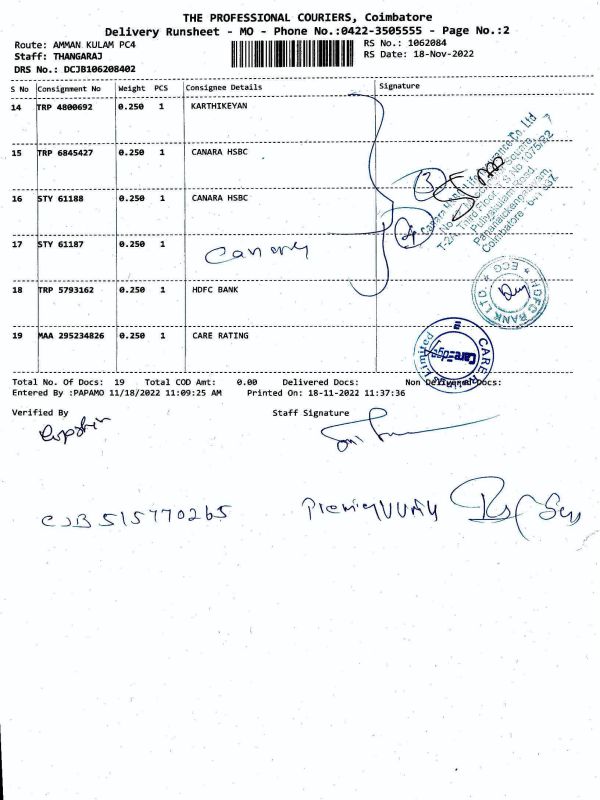 THE PROFESSIONAL COURIERS, Coimbatore
Delivery Runsheet - MO - Phone No.:0422-3505555 - Page No.:2
Route: AMMAN KULAM PC4 RS No.: 1062084
Staff: THANGARAJ RS Date: 18-Nov-2022
DRS No.: DCJB106208402
S No Consignment No Weight PCS Consignee Details Signature
14 TRP 4800692 0.250 1 KARTHIKEYAN
15 TRP 6845427 0.250 1 CANARA HSBC
16 STY 61188 0.250 1 CANARA HSBC
17 STY 61187 0.250 1
18 TRP 5793162 0.250 1 HDFC BANK
19 MAA 295234826 0.250 1 CARE RATING
3
Coimbatore
HDFC BANK LTD. ECG
CARE Limited
CareEdge
Total No. Of Docs: 19 Total COD Amt: 0.00 Delivered Docs: Non Delivered Docs:
Entered By :PAPAMO 11/18/2022 11:09:25 AM Printed On: 18-11-2022 11:37:36
Verified By Staff Signature
CJB 515770265